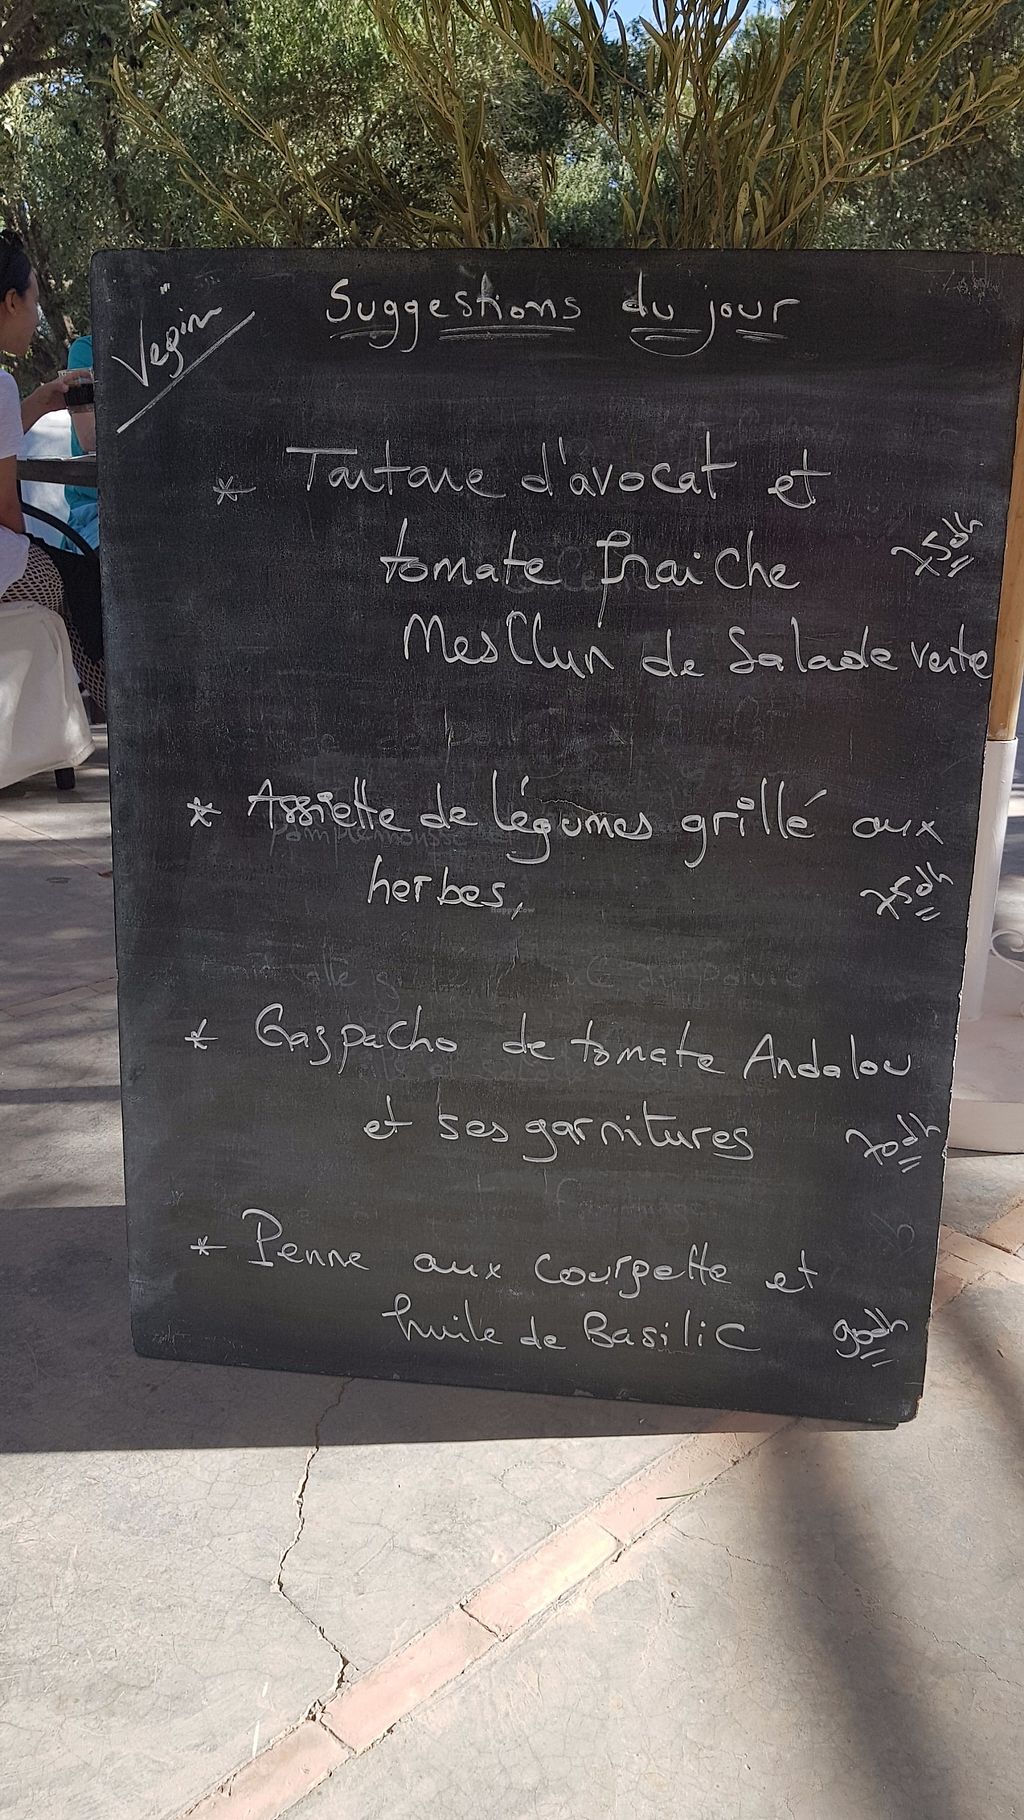 Suggestions du jour
* Tartare d'avocat et
tomate fraiche
75dh
Mesclun de Salade verte
* Assiette de légumes grillé aux
herbes,
75dh
* Gazpacho de tomate Andalou
et ses garnitures
70dh
* Penne aux courgette et
huile de Basilic
90dh
HappyCow